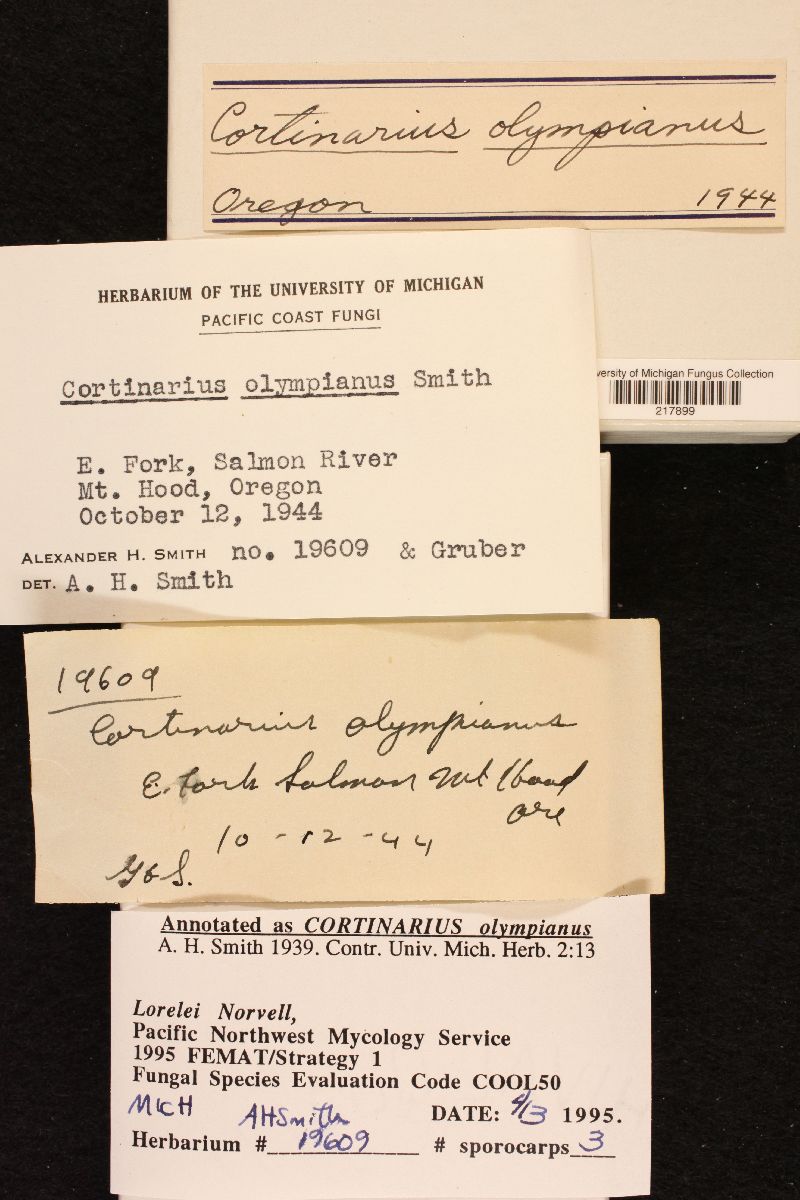 Cortinarius olympianus
Oregon 1944
HERBARIUM OF THE UNIVERSITY OF MICHIGAN
PACIFIC COAST FUNGI
Cortinarius olympianus Smith
E. Fork, Salmon River
Mt. Hood, Oregon
October 12, 1944
ALEXANDER H. SMITH no. 19609 & Gruber
DET. A. H. Smith
versity of Michigan Fungus Collection
217899
19609
Cortinarius olympianus
E. Fork Salmon Mt Hood
Ore
10-12-44
G & S.
Annotated as CORTINARIUS olympianus
A. H. Smith 1939. Contr. Univ. Mich. Herb. 2:13
Lorelei Norvell,
Pacific Northwest Mycology Service
1995 FEMAT/Strategy 1
Fungal Species Evaluation Code COOL50
MICH AHSmith DATE: 4/13 1995.
Herbarium # 19609 # sporocarps 3